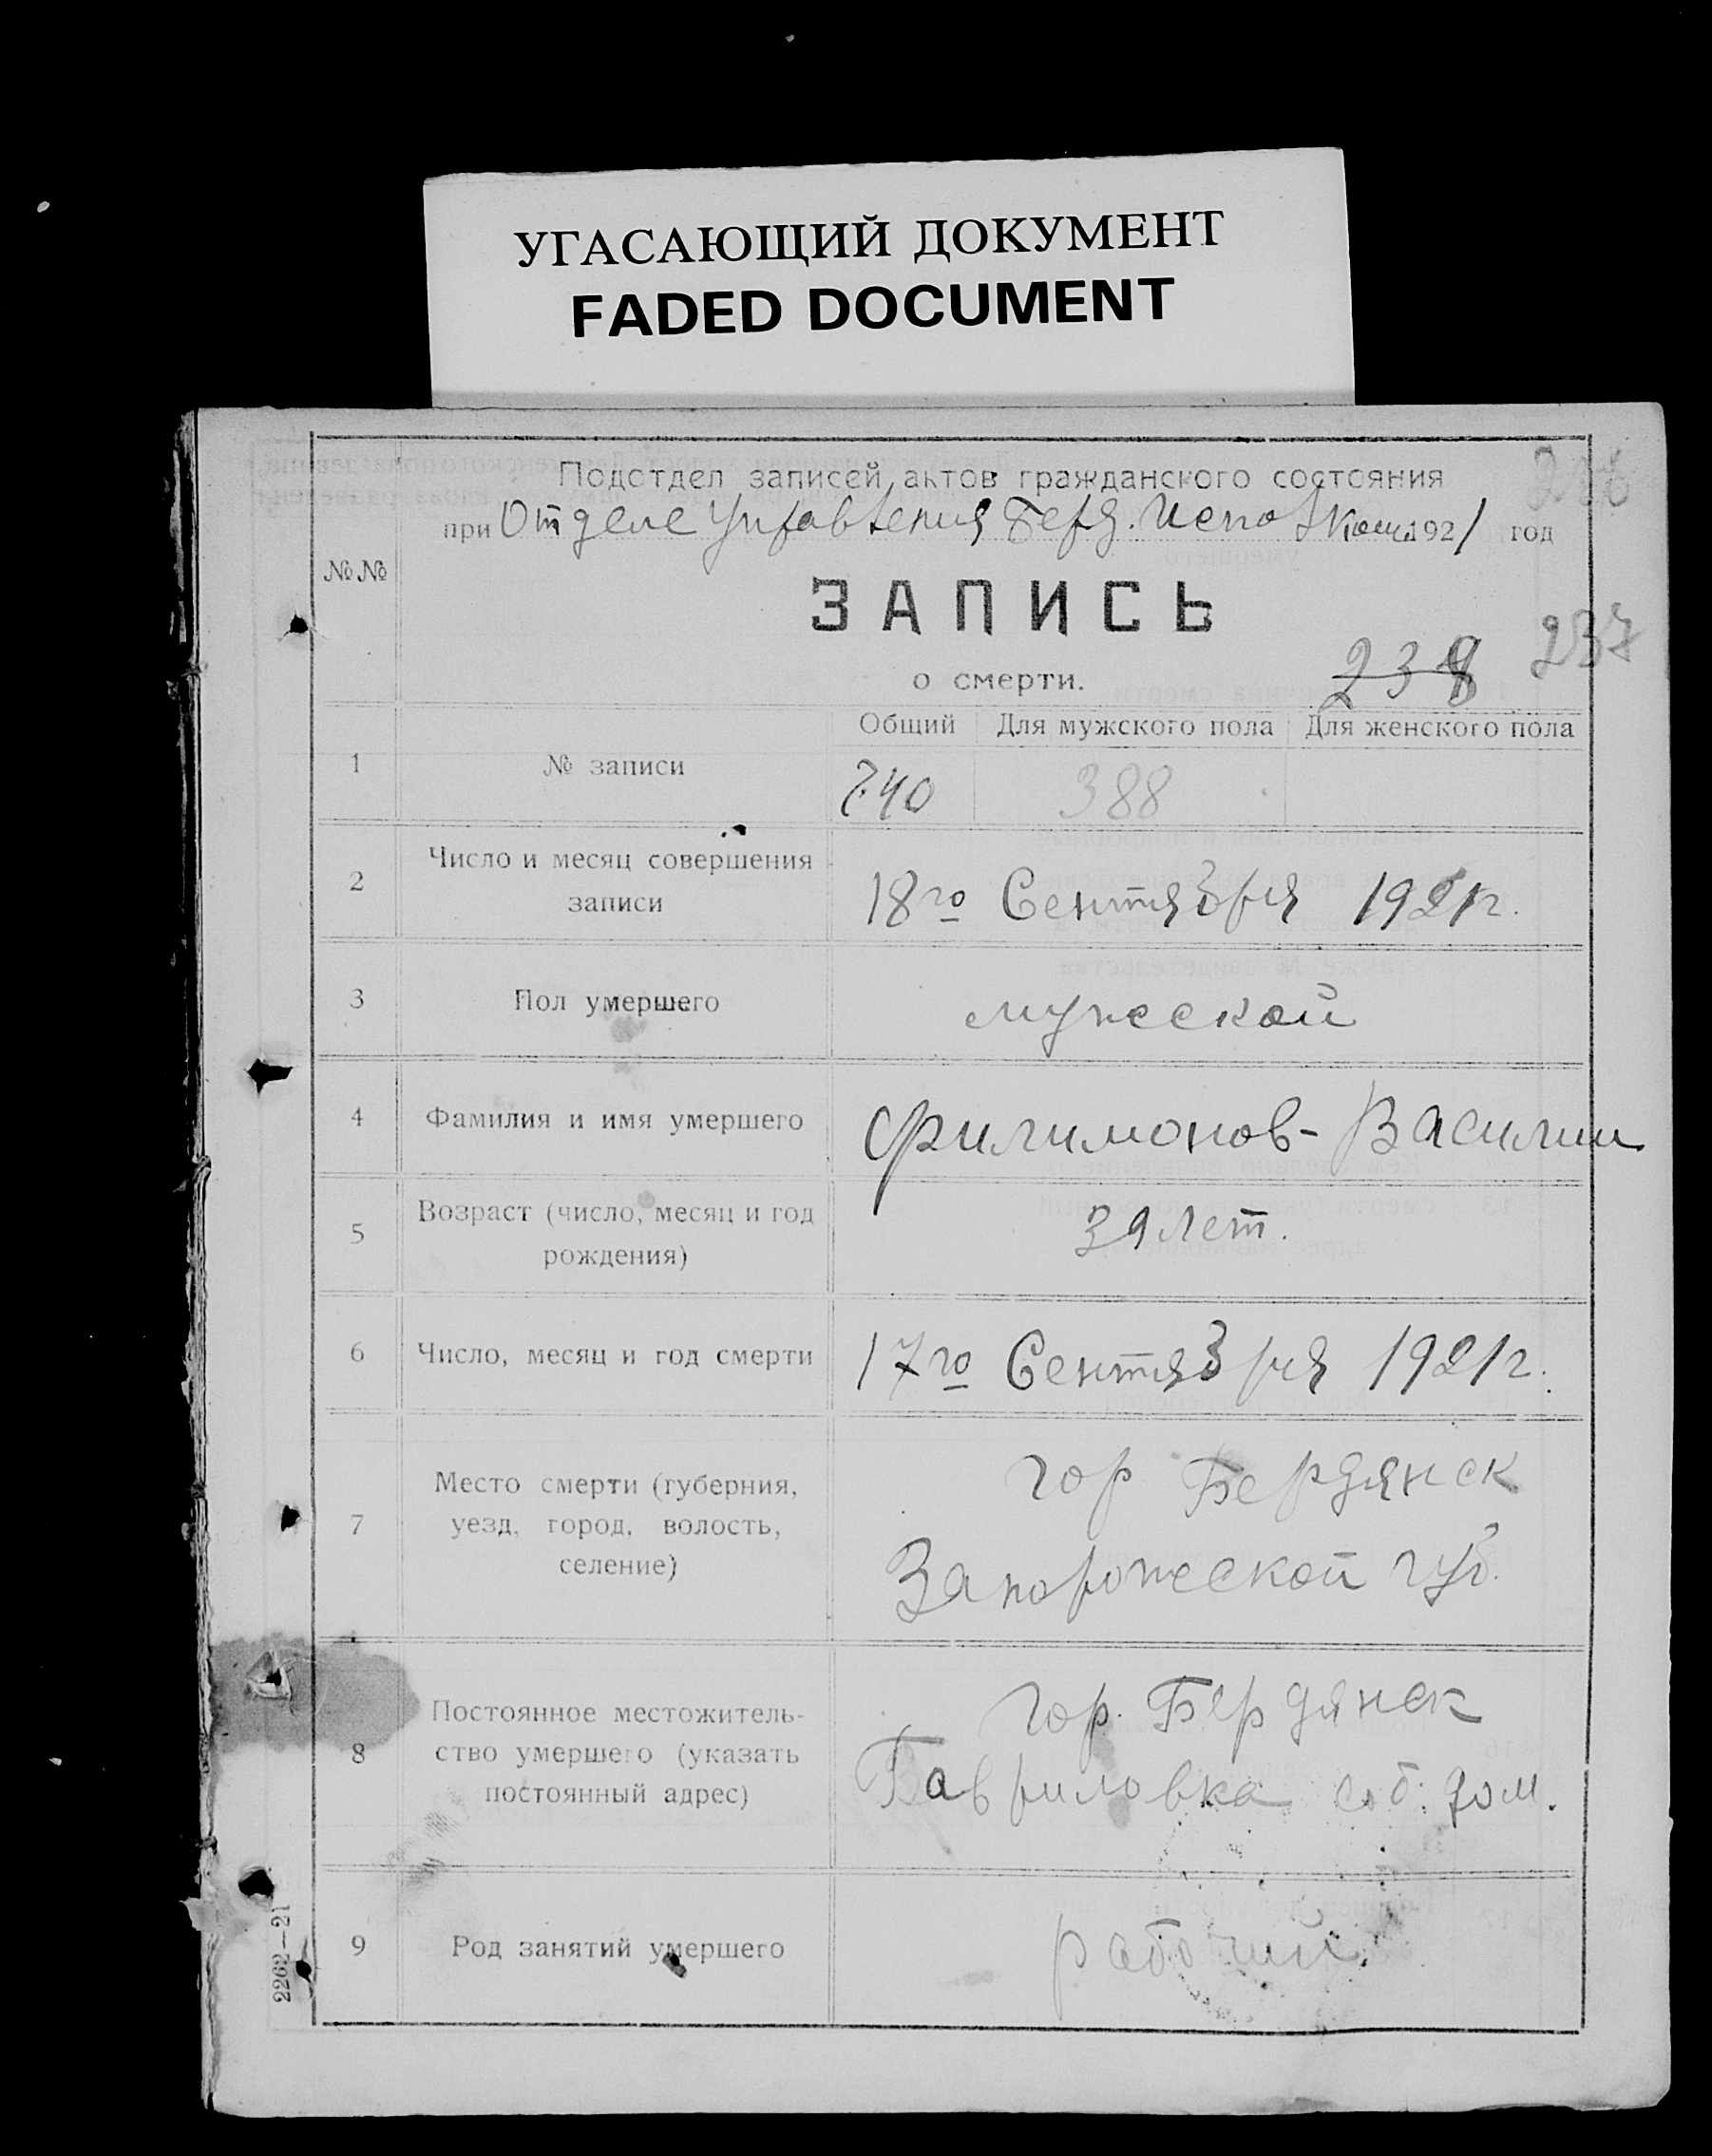 УГАСАЮЩИЙ ДОКУМЕНТ
FADED DOCUMENT
Подотдел записей актов гражданского состояния
при Отделе Управления Берд. Исполкома 1921 год
№№
ЗАПИСЬ
о смерти.
238
237
Общий Для мужского пола Для женского пола
1 № записи 740 388
2 Число и месяц совершения
записи
18го Сентября 1921г.
3 Пол умершего мужеской
4 Фамилия и имя умершего Филимонов- Василий
5 Возраст (число, месяц и год
рождения)
39 лет.
6 Число, месяц и год смерти 17го Сентября 1921г.
7 Место смерти (губерния,
уезд, город, волость,
селение)
гор Бердянск
Запорожеской губ.
8 Постоянное местожитель-
ство умершего (указать
постоянный адрес)
гор. Бердянск
Гавриловка соб. дом.
9 Род занятий умершего рабочий
2262—21